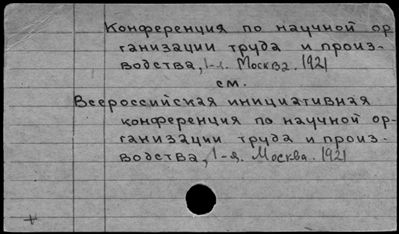 Конференция по научной ор
ганизации труда и произ-
водства, 1-я. Москва. 1921
см.
Всероссийская инициативная
конференция по научной ор-
ганизации труда и произ-
водства, 1-я. Москва. 1921